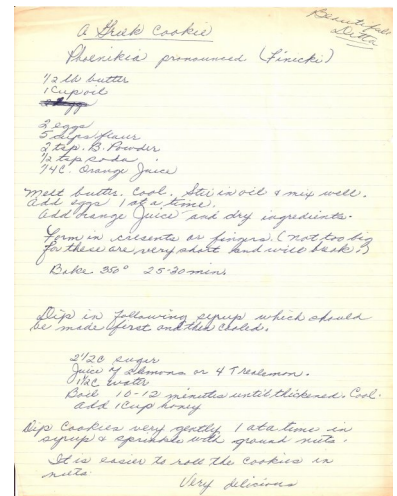 A Greek Cookie
Beautiful
Ditta
Phoenikia pronounced (Finicki)
1/2 lb butter
1 Cup oil
2 eggs
5 cups flour
2 tsp. B. Powder
1/2 tsp soda
1/4 C. Orange Juice
Melt butter. Cool. Stir in oil & mix well.
Add eggs 1 at a time.
Add orange juice and dry ingredients.
Form in cresents or fingers. (not too big
for these are very short and will break.)
Bake 350° 25-30 mins
Dip in following syrup which should
be made first and then cooled.
2 1/2 C sugar
Juice of 2 lemons or 4 T realemon.
1 1/4 C water
Boil 10-12 minutes until thickened. Cool.
add 1 Cup honey
Dip Cookies very gently 1 at a time in
syrup & sprinkle with ground nuts.
It is easier to roll the cookies in
nuts.
Very delicious